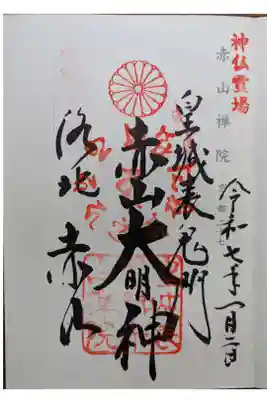 神仏霊場
赤山禅院
令和七年一月二日
皇城表鬼門
赤山大明神
洛北 赤山